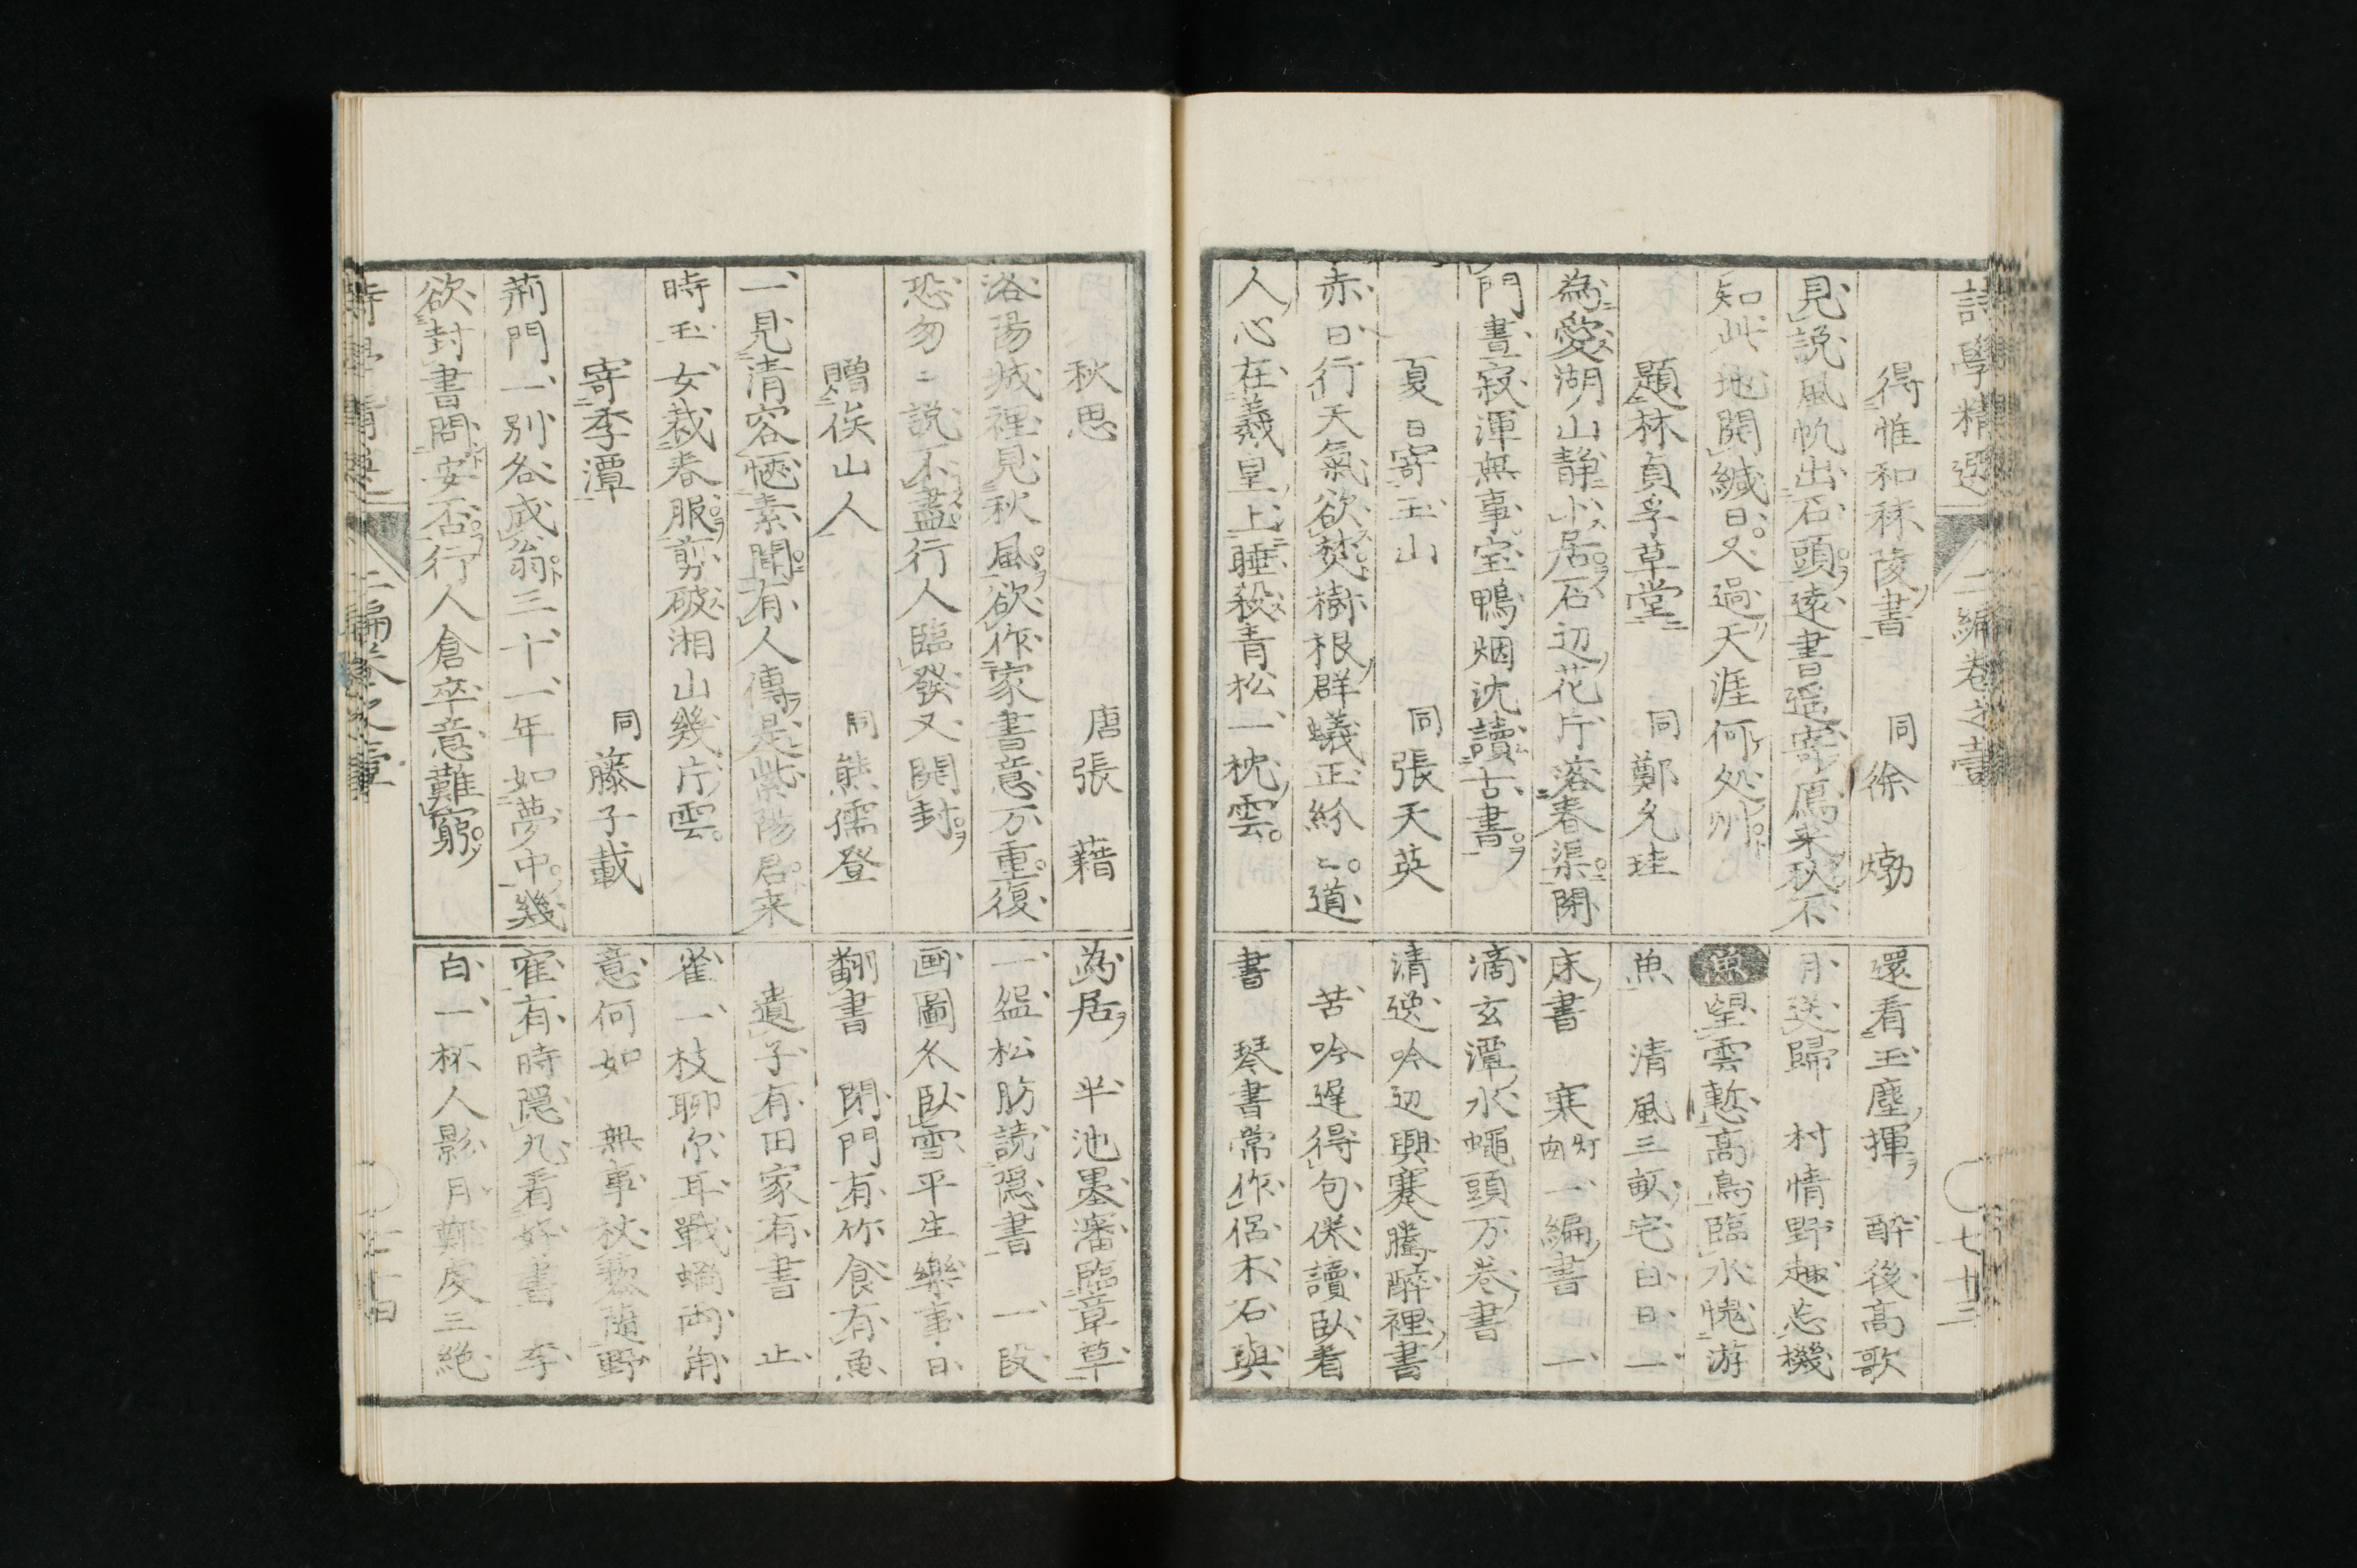 詩學精選 二編卷之壹 七十三
得惟和秣陵書 同徐𤊹
見説風帆出石頭遠書遥寄鴈来秋不
知此地開緘日又過天涯何処州
題林貞孚草堂 同鄭允珪
為愛湖山静小居石辺花片落春渠閉
門晝寂渾無事宝鴨烟沈讀古書
夏日寄玉山 同張天英
赤日行天氣欲焚樹根群蟻正紛〻道
人心在羲皇上睡殺青松一枕雲
還看玉塵揮 醉後高歌
月送歸 村情野趣忘機
魚 望雲慙高鳥臨水愧游
魚 清風三畝宅白日一
床書 寒灯 一編書 一
滴玄潭水蠅頭万巻書
清逸吟辺興蹇騰醉裡書
苦吟遅得句倦讀臥看
書 琴書常作侶木石與
秋思 唐張籍
洛陽城裡見秋風欲作家書意万重復
恐匆〻説不盡行人臨發又開封
贈侯山人 同熊儒登
一見清容愜素聞有人傳是紫陽君来
時玉女裁春服剪破湘山幾片雲
寄李潭 同藤子載
荊門一別各成翁三十一年如夢中幾
欲封書問安否行人倉卒意難窮
為居 半池墨瀋臨章草
一盌松肪読隠書 一段
画圖冬臥雪平生樂事日
翻書 閉門有竹食有魚
遺子有田家有書 止
雀一枝聊尓耳戰蝸両角
意何如 無事杖藜随野
寉有時隠几看好書 李
白一杯人影月鄭虔三絶
詩學精選 二編卷之壹 七十四